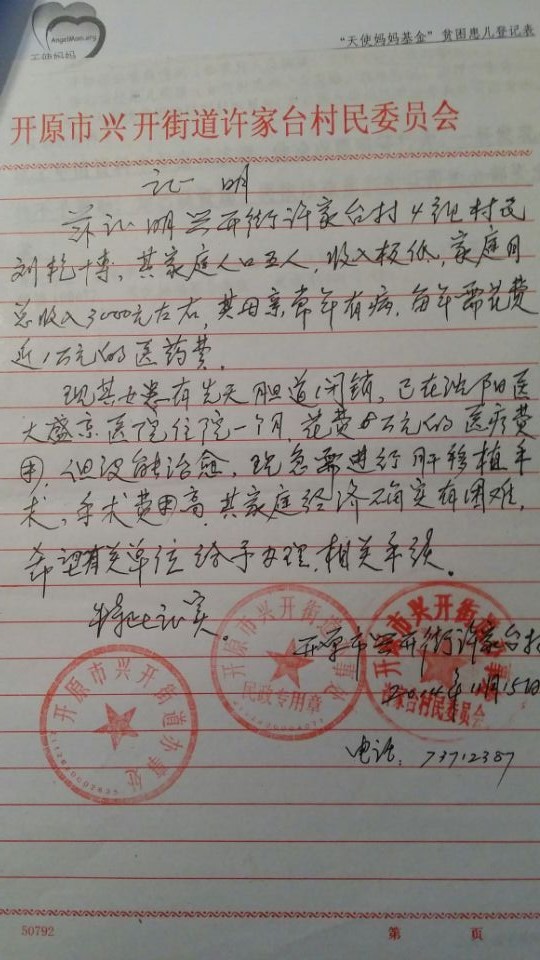 AngelMom.org
天使妈妈
“天使妈妈基金”贫困患儿登记表
开原市兴开街道许家台村民委员会
证明
兹证明兴开街许家台村4组村民
刘艳博，其家庭人口五人，收入极低，家庭月
总收入3000元左右，其母亲常年有病，每年需花费
近1万元的医药费。
现其女患有先天胆道闭锁，已在沈阳医
大盛京医院住院一个月，花费5万元的医疗费
用，但没能治愈，现急需进行肝移植手
术，手术费用高，其家庭经济确实有困难，
希望有关单位给予办理相关手续。
特此证实。
开原市兴开街许家台村
2014年11月15日
电话：73712387
开原市兴开街道办事处
开原市兴开街道办事处
民政专用章
开原市兴开街道
许家台村民委员会
50792
第 页